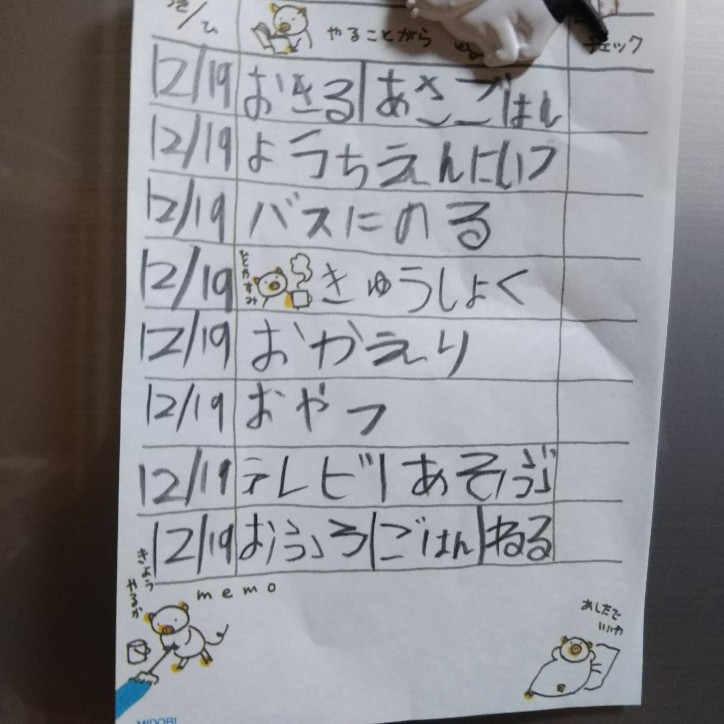 つき/ひ やることがら チェック
12/19 おきる|あさごはん
12/19 ようちえんにいつ
12/19 バスにのる
12/19 ひとやすみ きゅうしょく
12/19 おかえり
12/19 おやつ
12/19 テレビ|あそぶ
12/19 おふろ|ごはん|ねる
きょうやるか
memo
あしたで
いいわ
MIDORI